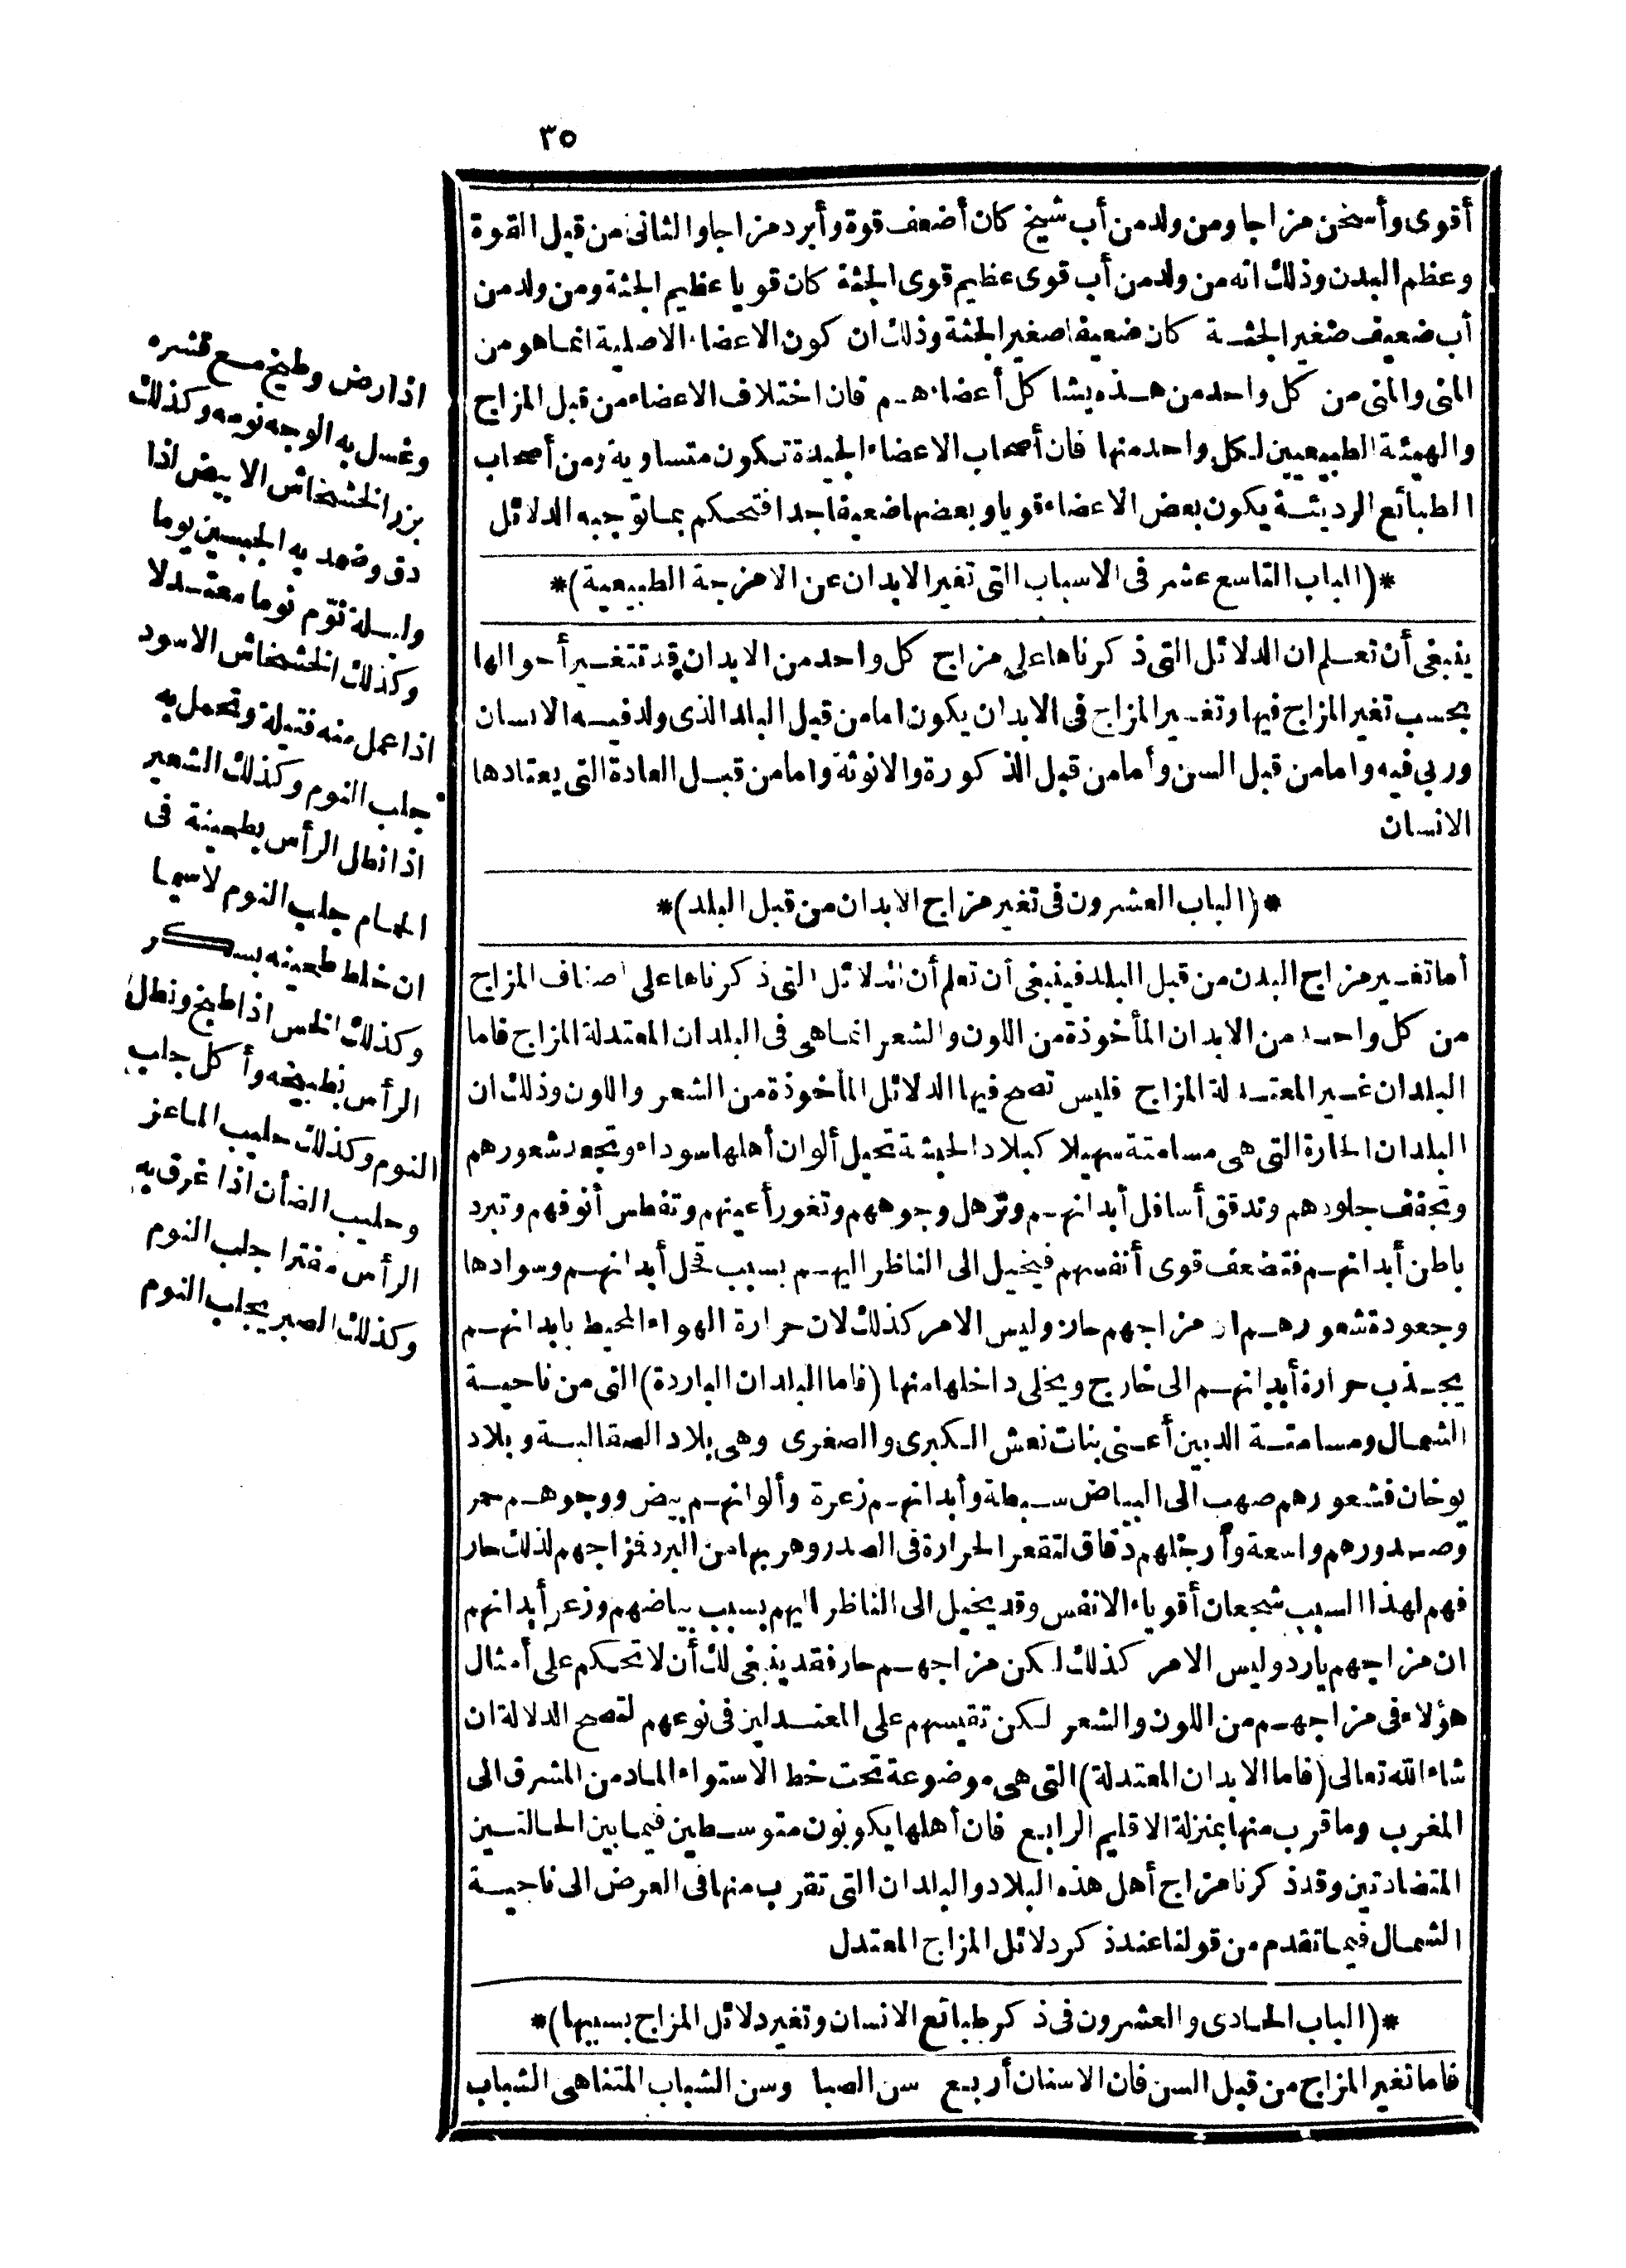 ٣٥
أقوى وأسخن مزاجا ومن ولد من أب شيخ كان أضعف قوة وأبرد مزاجا والثانى من قبل القوة
وعظم البدن وذلك انه من ولد من أب قوى عظيم قوى الجثة كان قويا عظيم الجثة ومن ولد من
أب ضعيف صغير الجثة كان ضعيفا صغير الجثة وذلك ان كون الاعضاء الاصلية انما هو من
المنى والمنى من كل واحد من هذه يشا كل أعضاءهم فان اختلاف الاعضاء من قبل المزاج
والهيئة الطبيعيين لكل واحد منها فان أصحاب الاعضاء الجيدة تكون متساوية ومن أصحاب
الطبائع الرديئة يكون بعض الاعضاء قويا وبعضها ضعيفا جدا فتحكم بما توجبه الدلائل
*(الباب التاسع عشر فى الاسباب التى تغير الابدان عن الامزجة الطبيعية)*
ينبغى أن تعلم ان الدلائل التى ذكرناها على مزاج كل واحد من الابدان قد تتغير أحوالها
بحسب تغير المزاج فيها وتغير المزاج فى الابدان يكون اما من قبل البلد الذى ولد فيه الانسان
وربى فيه واما من قبل السن وأما من قبل الذكورة والانوثة واما من قبل العادة التى يعتادها
الانسان
*(الباب العشرون فى تغير مزاج الابدان من قبل البلد)*
أما تغير مزاج البدن من قبل البلد فينبغى أن تعلم أن الدلائل التى ذكرناها على اصناف المزاج
من كل واحد من الابدان المأخوذة من اللون والشعر انما هى فى البلدان المعتدلة المزاج فاما
البلدان غير المعتدلة المزاج فليس تصح فيها الدلائل المأخوذة من الشعر واللون وذلك ان
البلدان الحارة التى هى مسامتة سهيلا كبلاد الحبشة تحيل ألوان أهلها سوداء وتجعد شعورهم
وتجفف جلودهم وتدقق أسافل أبدانهم وترهل وجوههم وتغور أعينهم وتفطس أنوفهم وتبرد
باطن أبدانهم فتضعف قوى أنفسهم فيخيل الى الناظر اليهم بسبب قحل أبدانهم وسوادها
وجعودة شعورهم ان مزاجهم حار وليس الامر كذلك لان حرارة الهواء المحيط بابدانهم
يجذب حرارة أبدانهم الى خارج ويخلى داخلها منها (فاما البلدان الباردة) التى من ناحية
الشمال ومسامتة الدبين أعنى بنات نعش الكبرى والصغرى وهى بلاد الصقالبة وبلاد
يوخان فشعورهم صهب الى البياض سبطة وأبدانهم زعرة وألوانهم بيض ووجوههم حمر
وصدورهم واسعة وأرجلهم دقاق لتقعر الحرارة فى الصدر وهربها من البرد فزاجهم لذلك حار
فهم لهذا السبب شجعان أقوياء الانفس وقد يخيل الى الناظر اليهم بسبب بياضهم وزعر أبدانهم
ان مزاجهم بارد وليس الامر كذلك لكن مزاجهم حار فقد ينبغى لك أن لا تحكم على أمثال
هؤلاء فى مزاجهم من اللون والشعر لكن تقيسهم على المعتدلين فى نوعهم لتصح الدلالة ان
شاء الله تعالى (فاما الابدان المعتدلة) التى هى موضوعة تحت خط الاستواء الماد من المشرق الى
المغرب وما قرب منها بمنزلة الاقليم الرابع فان أهلها يكونون متوسطين فيما بين الحالتين
المتضادتين وقد ذكرنا مزاج أهل هذه البلاد والبلدان التى تقرب منها فى العرض الى ناحية
الشمال فيما تقدم من قولنا عند ذكر دلائل المزاج المعتدل
*(الباب الحادى والعشرون فى ذكر طبائع الانسان وتغير دلائل المزاج بسببها)*
فاما تغير المزاج من قبل السن فان الاسنان أربع سن الصبا وسن الشباب المتناهى الشباب
اذا رض وطبخ مع قشره
وغسل به الوجه نومه وكذلك
بزر الخشخاش الابيض اذا
دق وضمد به الجبين يوما
وليلة نوّم نوما معتدلا
وكذلك الخشخاش الاسود
اذا عمل منه فتيلة وتحمل به
جلب النوم وكذلك الشعير
اذا نطل الرأس بطحينة فى
الحمام جلب النوم لاسيما
ان خلط طحينه بسكر
وكذلك الخس اذا طبخ ونطل
الرأس بطبيخه وأكل جلب
النوم وكذلك حليب الماعز
وحليب الضأن اذا غرق به
الرأس مفترا جلب النوم
وكذلك الصبر يجلب النوم